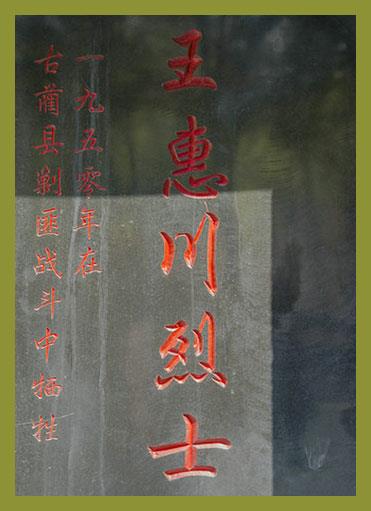 王惠川烈士
一九五零年在
古蔺县剿匪战斗中牺牲